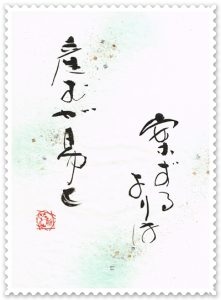 案ずる
よりは
産むが易し